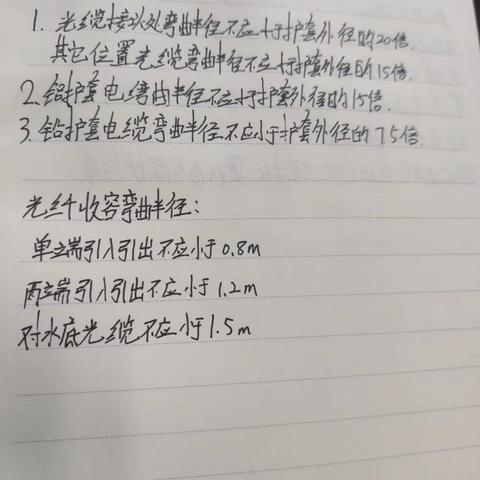 1. 光缆接头处弯曲半径不应小于护套外径的20倍.
其它位置光缆弯曲半径不应小于护套外径的15倍.
2. 铝护套电缆弯曲半径不应小于护套外径的15倍.
3. 铅护套电缆弯曲半径不应小于护套外径的7.5倍.
光纤收容弯曲半径:
单端引入引出不应小于0.8m
两端引入引出不应小于1.2m
对水底光缆不应小于1.5m